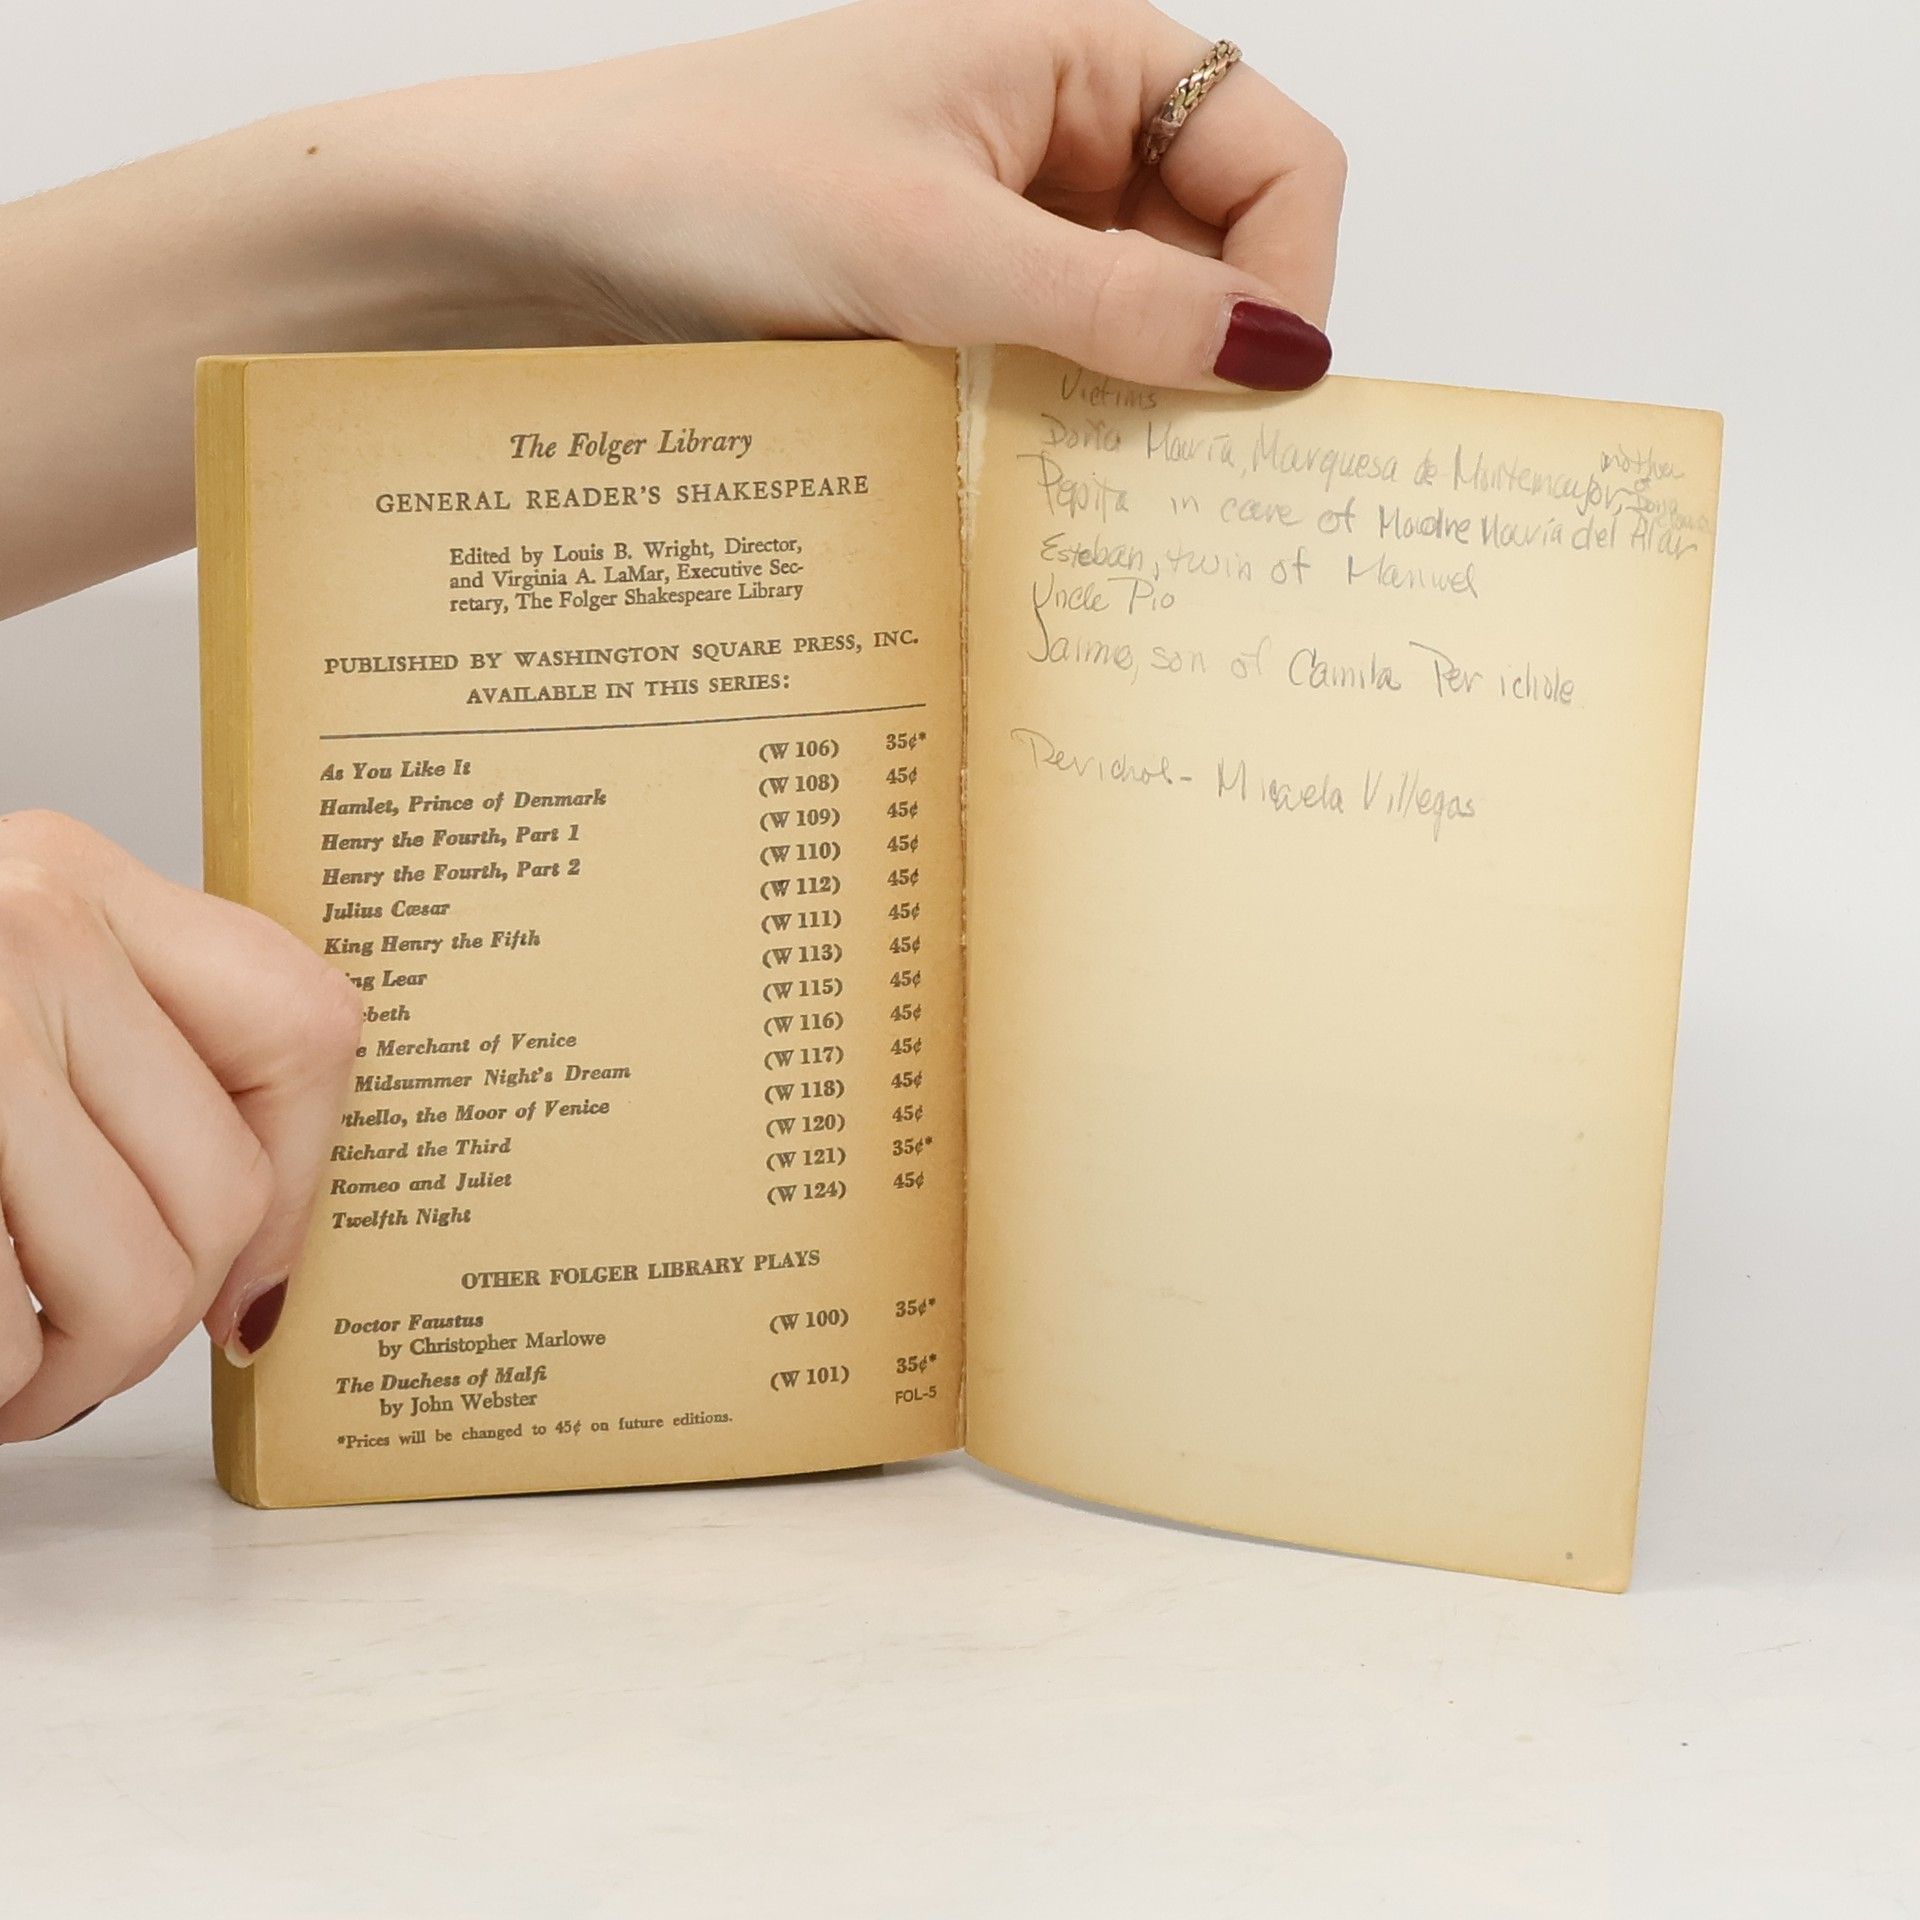 The Folger Library
GENERAL READER'S SHAKESPEARE
Edited by Louis B. Wright, Director,
and Virginia A. LaMar, Executive Sec-
retary, The Folger Shakespeare Library
PUBLISHED BY WASHINGTON SQUARE PRESS, INC.
AVAILABLE IN THIS SERIES:
As You Like It (W 106) 35¢*
Hamlet, Prince of Denmark (W 108) 45¢
Henry the Fourth, Part 1 (W 109) 45¢
Henry the Fourth, Part 2 (W 110) 45¢
Julius Cæsar (W 112) 45¢
King Henry the Fifth (W 111) 45¢
ng Lear (W 113) 45¢
cbeth (W 115) 45¢
e Merchant of Venice (W 116) 45¢
Midsummer Night's Dream (W 117) 45¢
thello, the Moor of Venice (W 118) 45¢
Richard the Third (W 120) 45¢
Romeo and Juliet (W 121) 35¢*
Twelfth Night (W 124) 45¢
OTHER FOLGER LIBRARY PLAYS
Doctor Faustus (W 100) 35¢*
by Christopher Marlowe
The Duchess of Malfi (W 101) 35¢*
by John Webster
FOL-5
*Prices will be changed to 45¢ on future editions.
Victims
Doña María, Marquesa de Montemayor, mother of Doña
Pepita in care of Madre María del Pilar
Esteban, twin of Manuel
Uncle Pio
Jaime, son of Camila Perichole
Perichol - Micaela Villegas